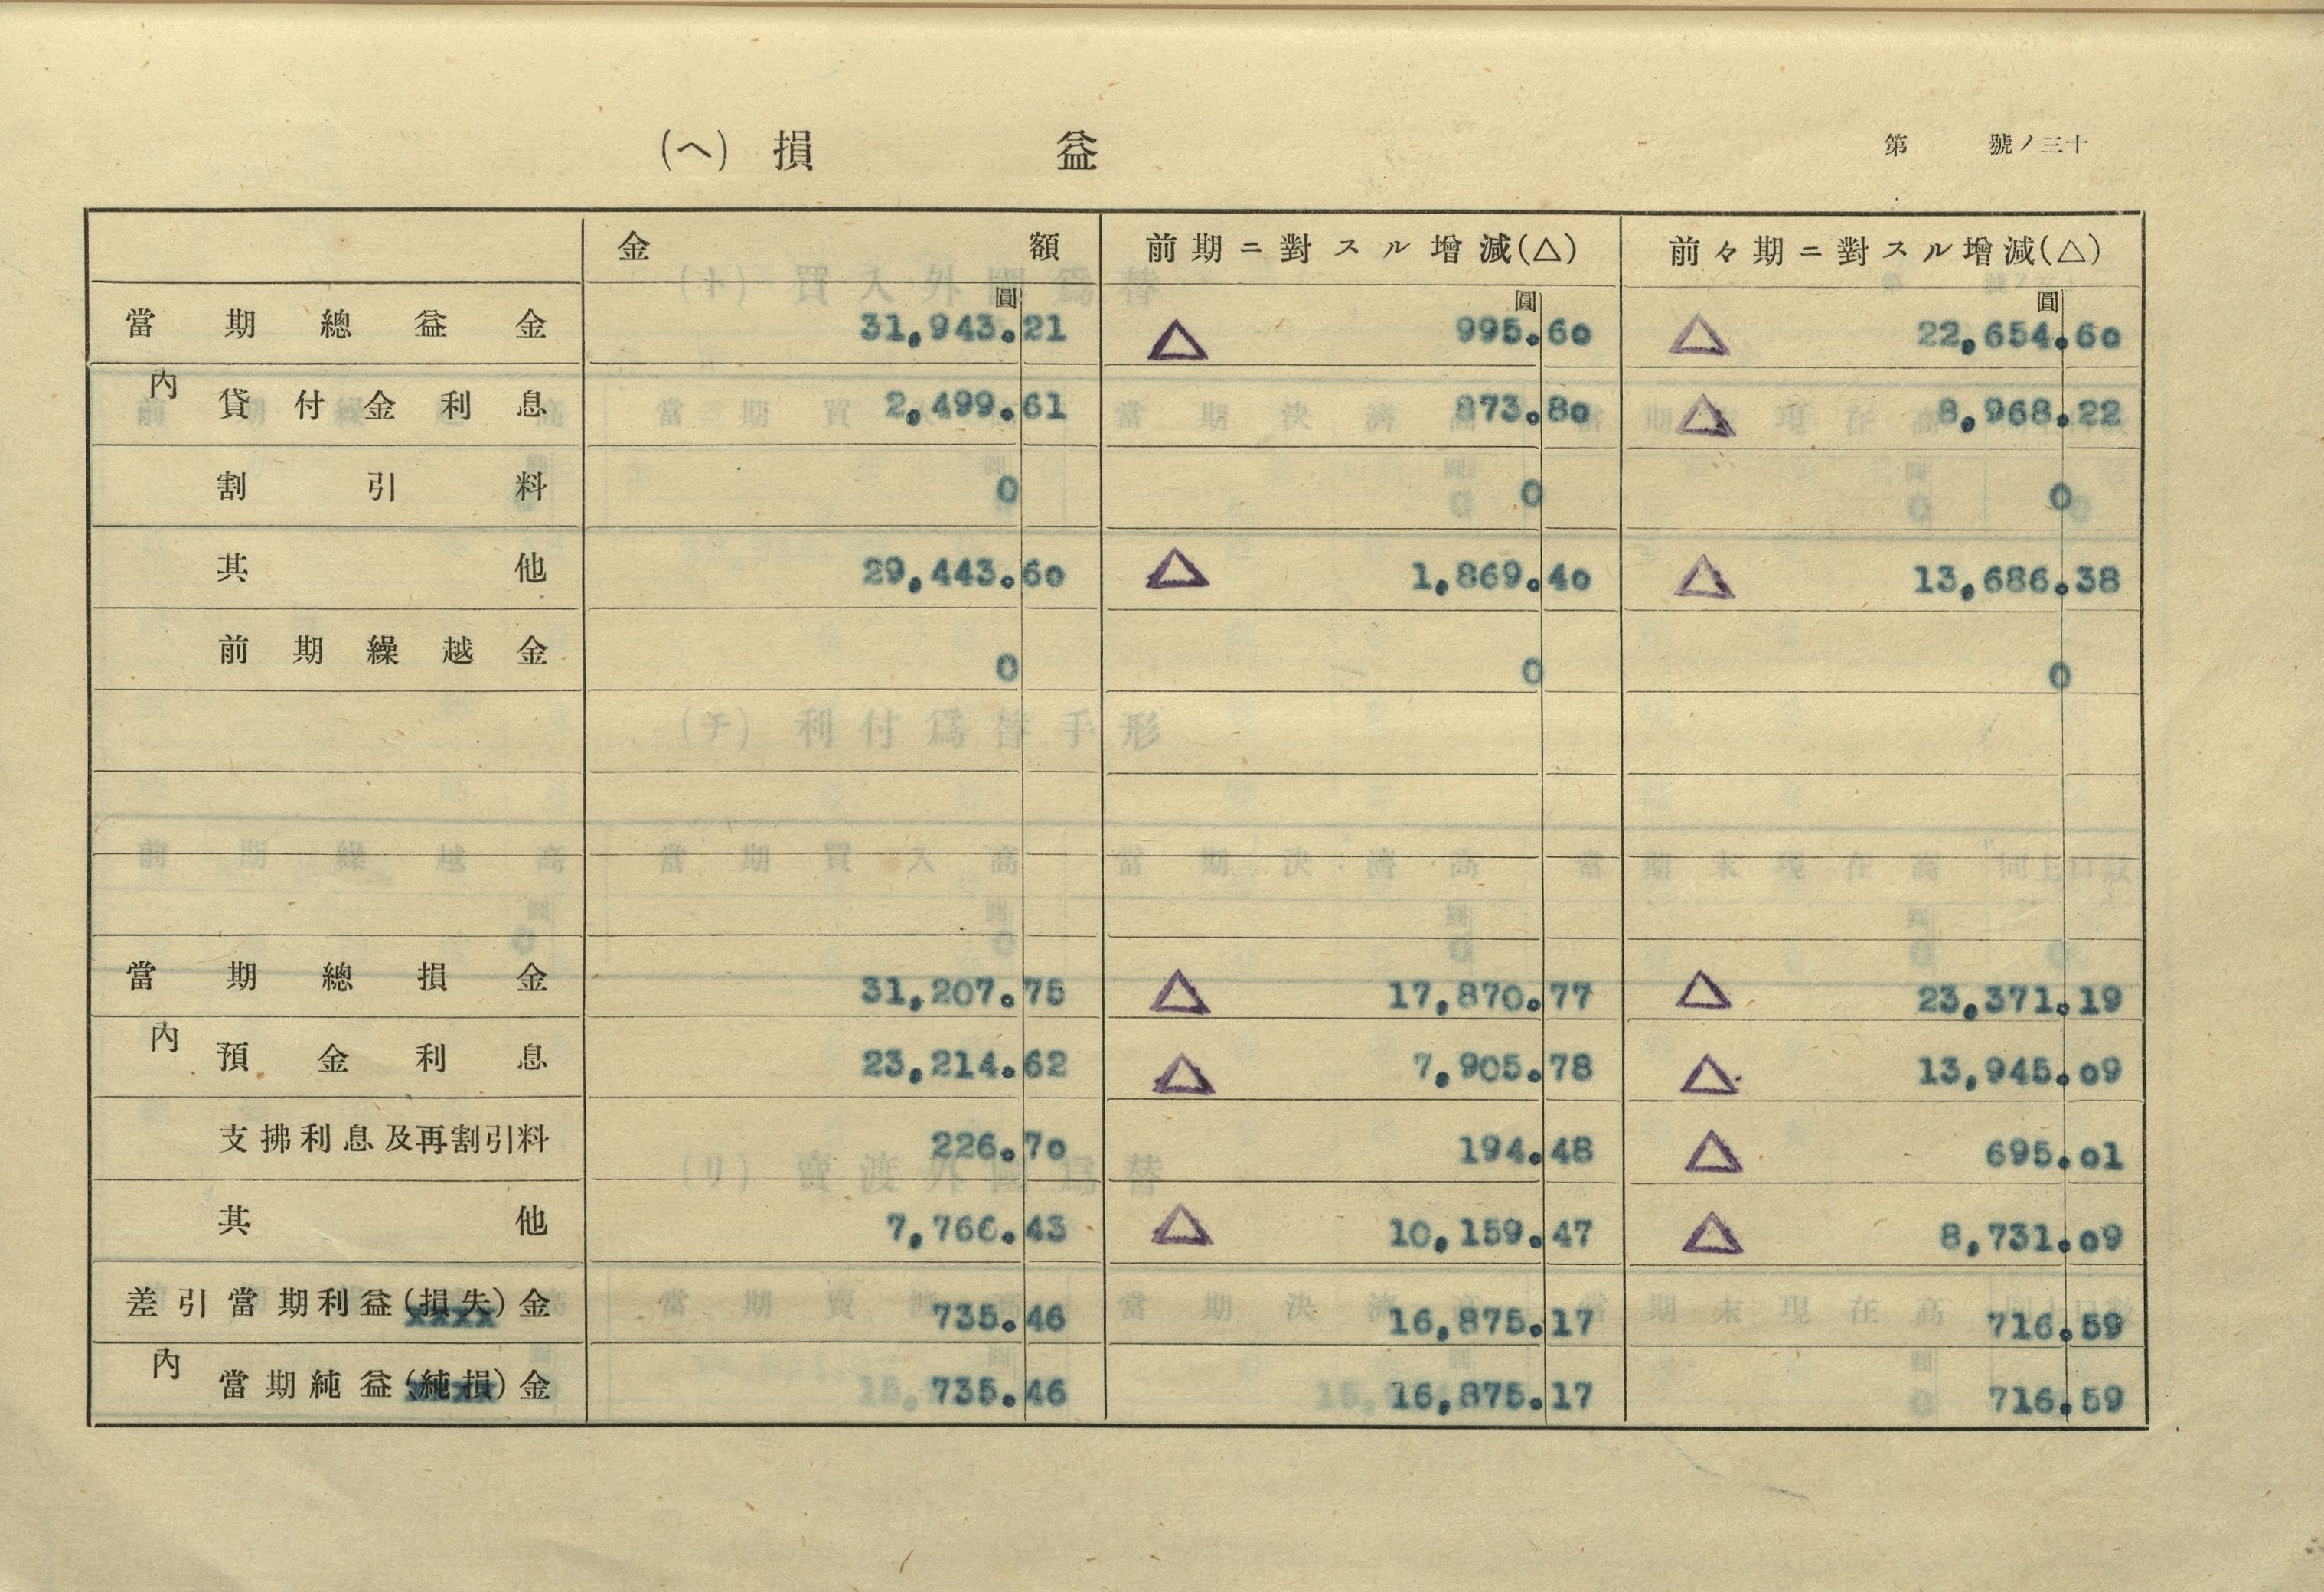 (ヘ) 損益 第 號ノ三十
金額 前期ニ對スル增減(△) 前々期ニ對スル增減(△)
圓 圓 圓
當期總益金 31,943.21 △ 995.60 △ 22,654.60
內 貸付金利息 2,499.61 873.80 △ 8,968.22
割引料 0 0 0
其他 29,443.60 △ 1,869.40 △ 13,686.38
前期繰越金 0 0 0
當期總損金 31,207.75 △ 17,870.77 △ 23,371.19
內 預金利息 23,214.62 △ 7,905.78 △ 13,945.09
支拂利息及再割引料 226.70 194.48 △ 695.01
其他 7,766.43 △ 10,159.47 △ 8,731.09
差引當期利益(損失)金 735.46 16,875.17 716.59
內 當期純益(純損)金 735.46 16,875.17 716.59